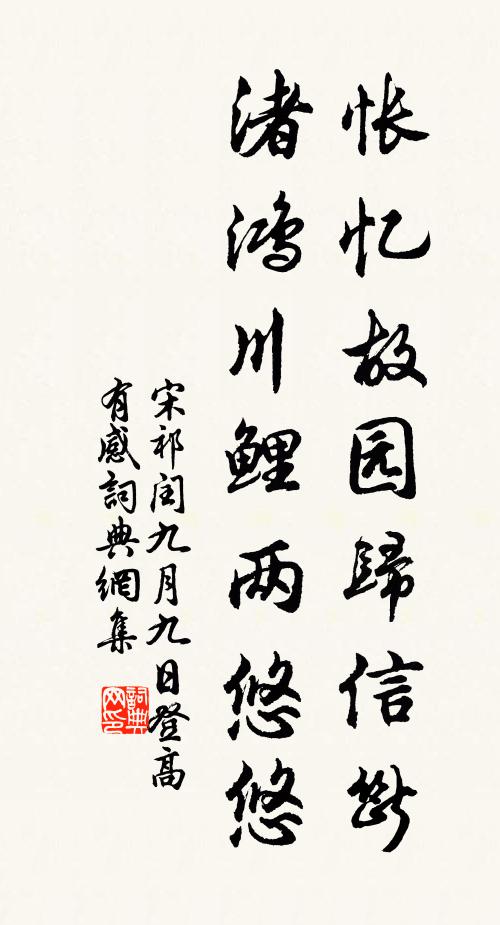 怅忆故园歸信斷
渚鸿川鲤两悠悠
宋祁闰九月九日登高
有感詞典網集
詞典网印